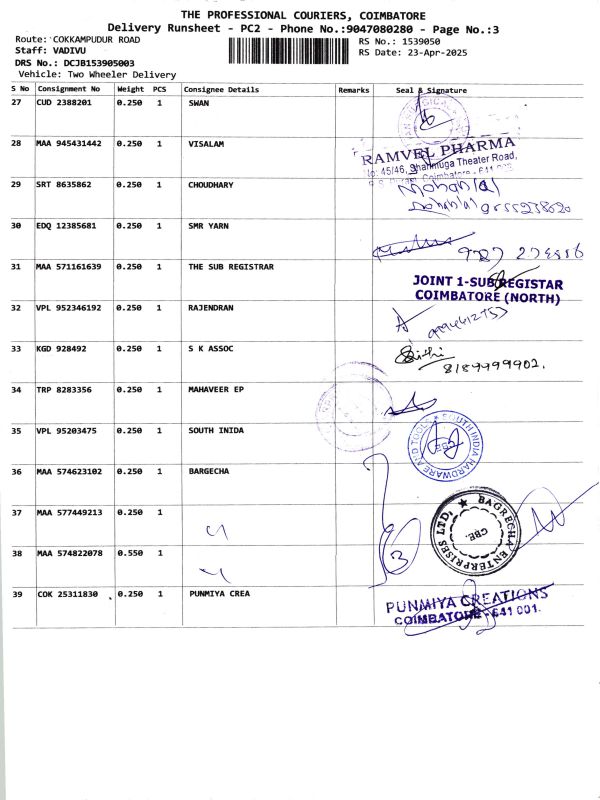 THE PROFESSIONAL COURIERS, COIMBATORE
Delivery Runsheet - PC2 - Phone No.:9047080280 - Page No.:3
Route: COKKAMPUDUR ROAD
RS No.: 1539050
Staff: VADIVU
RS Date: 23-Apr-2025
DRS No.: DCJB153905003
Vehicle: Two Wheeler Delivery
S No Consignment No Weight PCS Consignee Details Remarks Seal & Signature
27 CUD 2388201 0.250 1 SWAN
28 MAA 945431442 0.250 1 VISALAM
RAMVEL PHARMA
No: 45/46, Shanmuga Theater Road,
29 SRT 8635862 0.250 1 CHOUDHARY
Mohanlal
30 EDQ 12385681 0.250 1 SMR YARN
31 MAA 571161639 0.250 1 THE SUB REGISTRAR
JOINT 1-SUB REGISTAR
COIMBATORE (NORTH)
32 VPL 952346192 0.250 1 RAJENDRAN
33 KGD 928492 0.250 1 S K ASSOC
8189999902.
34 TRP 8283356 0.250 1 MAHAVEER EP
35 VPL 95203475 0.250 1 SOUTH INIDA
SOUTH INDIA HARDWARE AND TOOLS
CBE
36 MAA 574623102 0.250 1 BARGECHA
BAGRECHA ENTERPRISES LTD.
CBE.
37 MAA 577449213 0.250 1
38 MAA 574822078 0.550 1
3
39 COK 25311830 0.250 1 PUNMIYA CREA
PUNMIYA CREATIONS
COIMBATORE - 641 001.